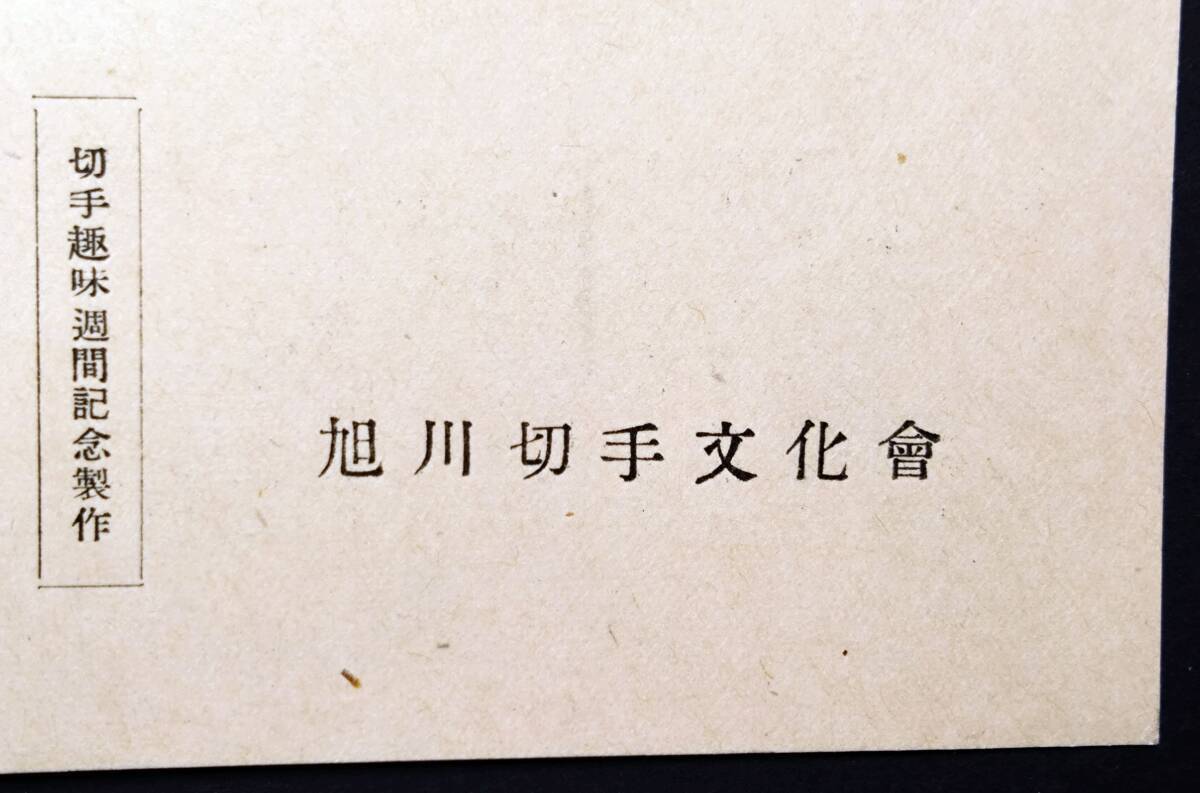 切手趣味週間記念製作
旭川切手文化會